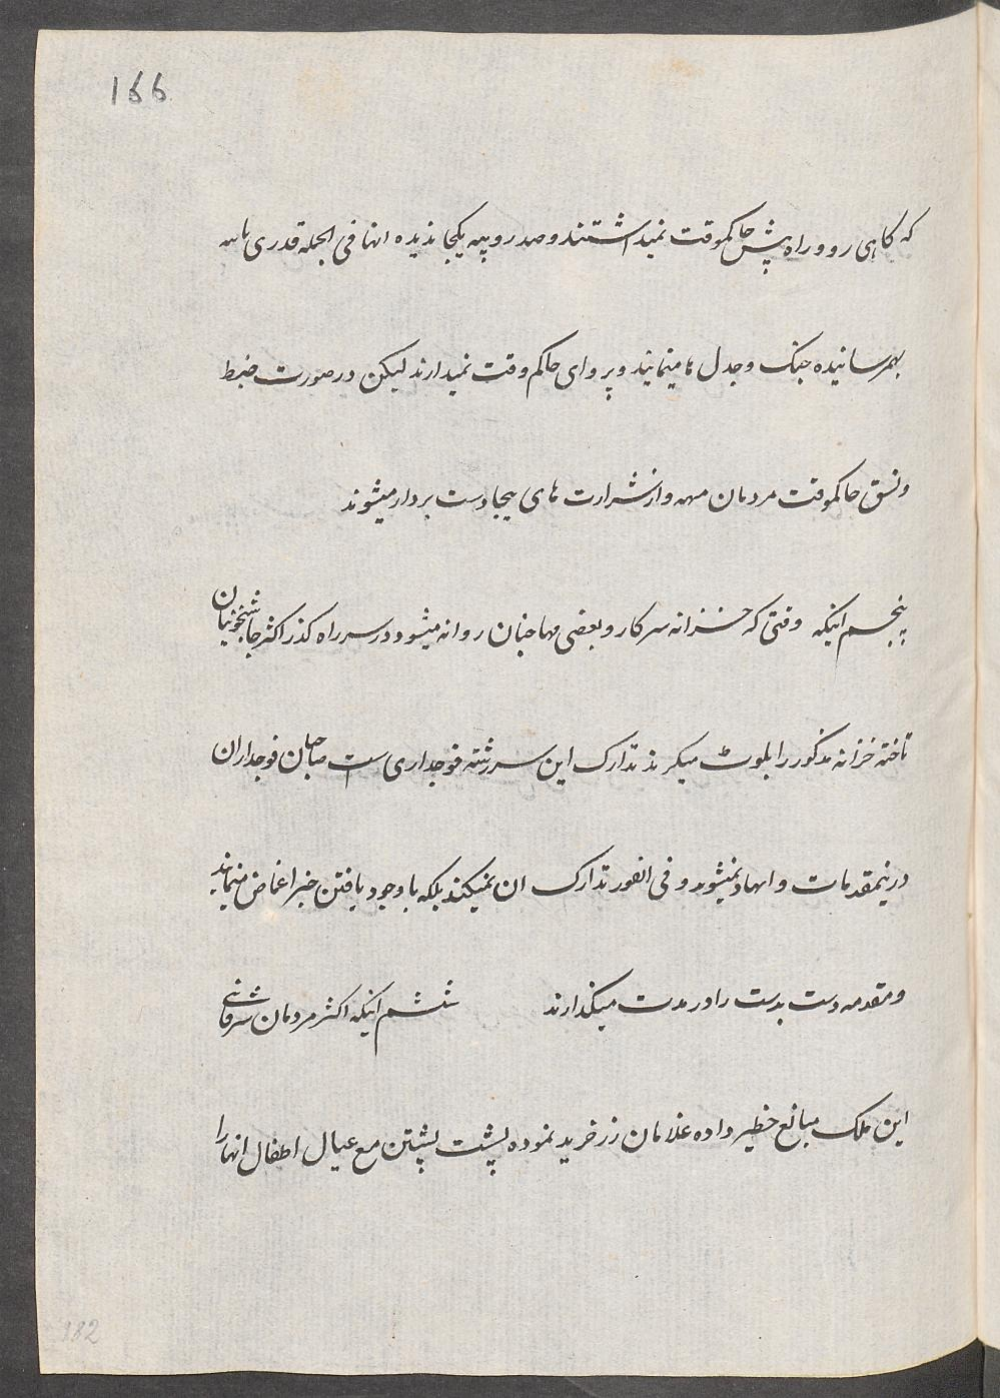 166
که کاهی رو و راه پیش حاکموقت نمیداشتند و صد روپیه یکجا ندیده انها فی الجمله قدری
بهمرسانیده جنک و جدل ها مینمایند و پروای حاکم وقت نمیدارند لیکن در صورت ضبط
و نسق حاکموقت مردمان و از شرارت های بیجا دست بردار میشوند
پنجم اینکه وقتی که خزانه سرکار و بعضی مهاجنان روانه میشود در سر راه کذر اکثر جا شبخونیان
تاخته خزانه مذکور را بلوٹ میکرند تدارک این سررشته فوجداری ست صاحبان فوجداران
درینمقدمات نمیشوند و فی الفور تدارک ان نمیکنند بلکه با وجود یافتن خبر اغماض مینمایند
و مقدمه دست بدست را در مدت میکذارند ششم اینکه اکثر مردمان شرفای
این ملک مبالغ خطیر داده غلامان زر خرید نموده پشت پشتن مع عیال اطفال انها را
182